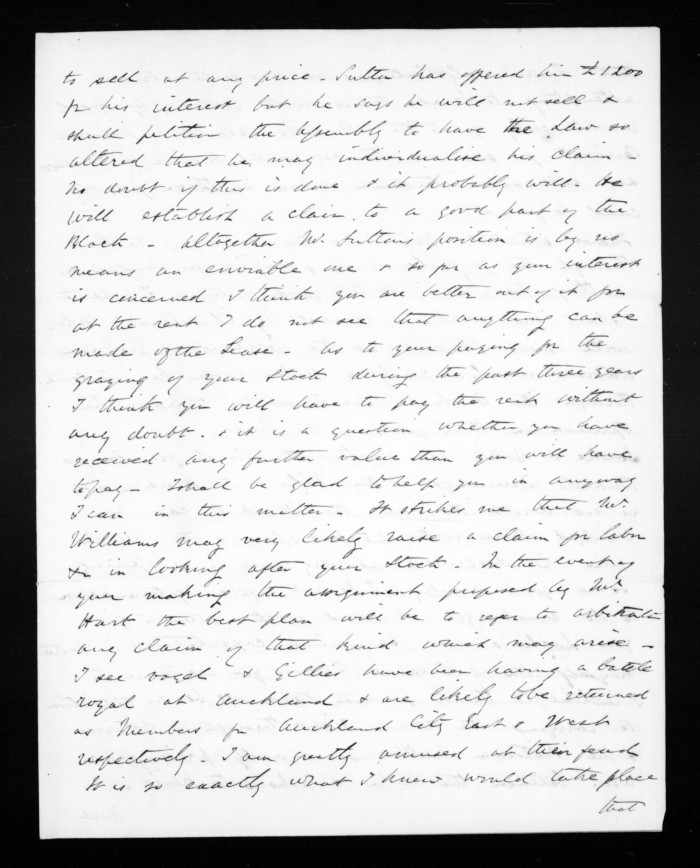 to sell at any price - Sutton has offered him £1200
for his interest but he says he will not sell &
shall petition the Assembly to have the Law so
altered that he may individualise his claim -
No doubt if this is done & it probably will. He
will establish a claim to a good part of the
Block - altogether Mr Sutton's position is by no
means an enviable one & so far as your interest
is concerned I think you are better out of it for
at the rent I do not see that anything can be
made of the Lease - As to your paying for the
grazing of your Stock during the past three years
I think you will have to pay the rent without
any doubt. & it is a question whether you have
received any further value than you will have
to pay - I shall be glad to help you in anyway
I can in this matter - It strikes me that Mr
Williams may very likely raise a claim for labor
&c in looking after your Stock - In the event of
your making the assignment proposed by Mr
Hart the best plan will be to refer to arbitration
any claim of that kind which may arise -
I see Vogel & Gillies have been having a battle
royal at Auckland & are likely to be returned
as Members for Auckland City East & West
respectively. I am greatly amused at their feud
It is so exactly what I knew would take place
that